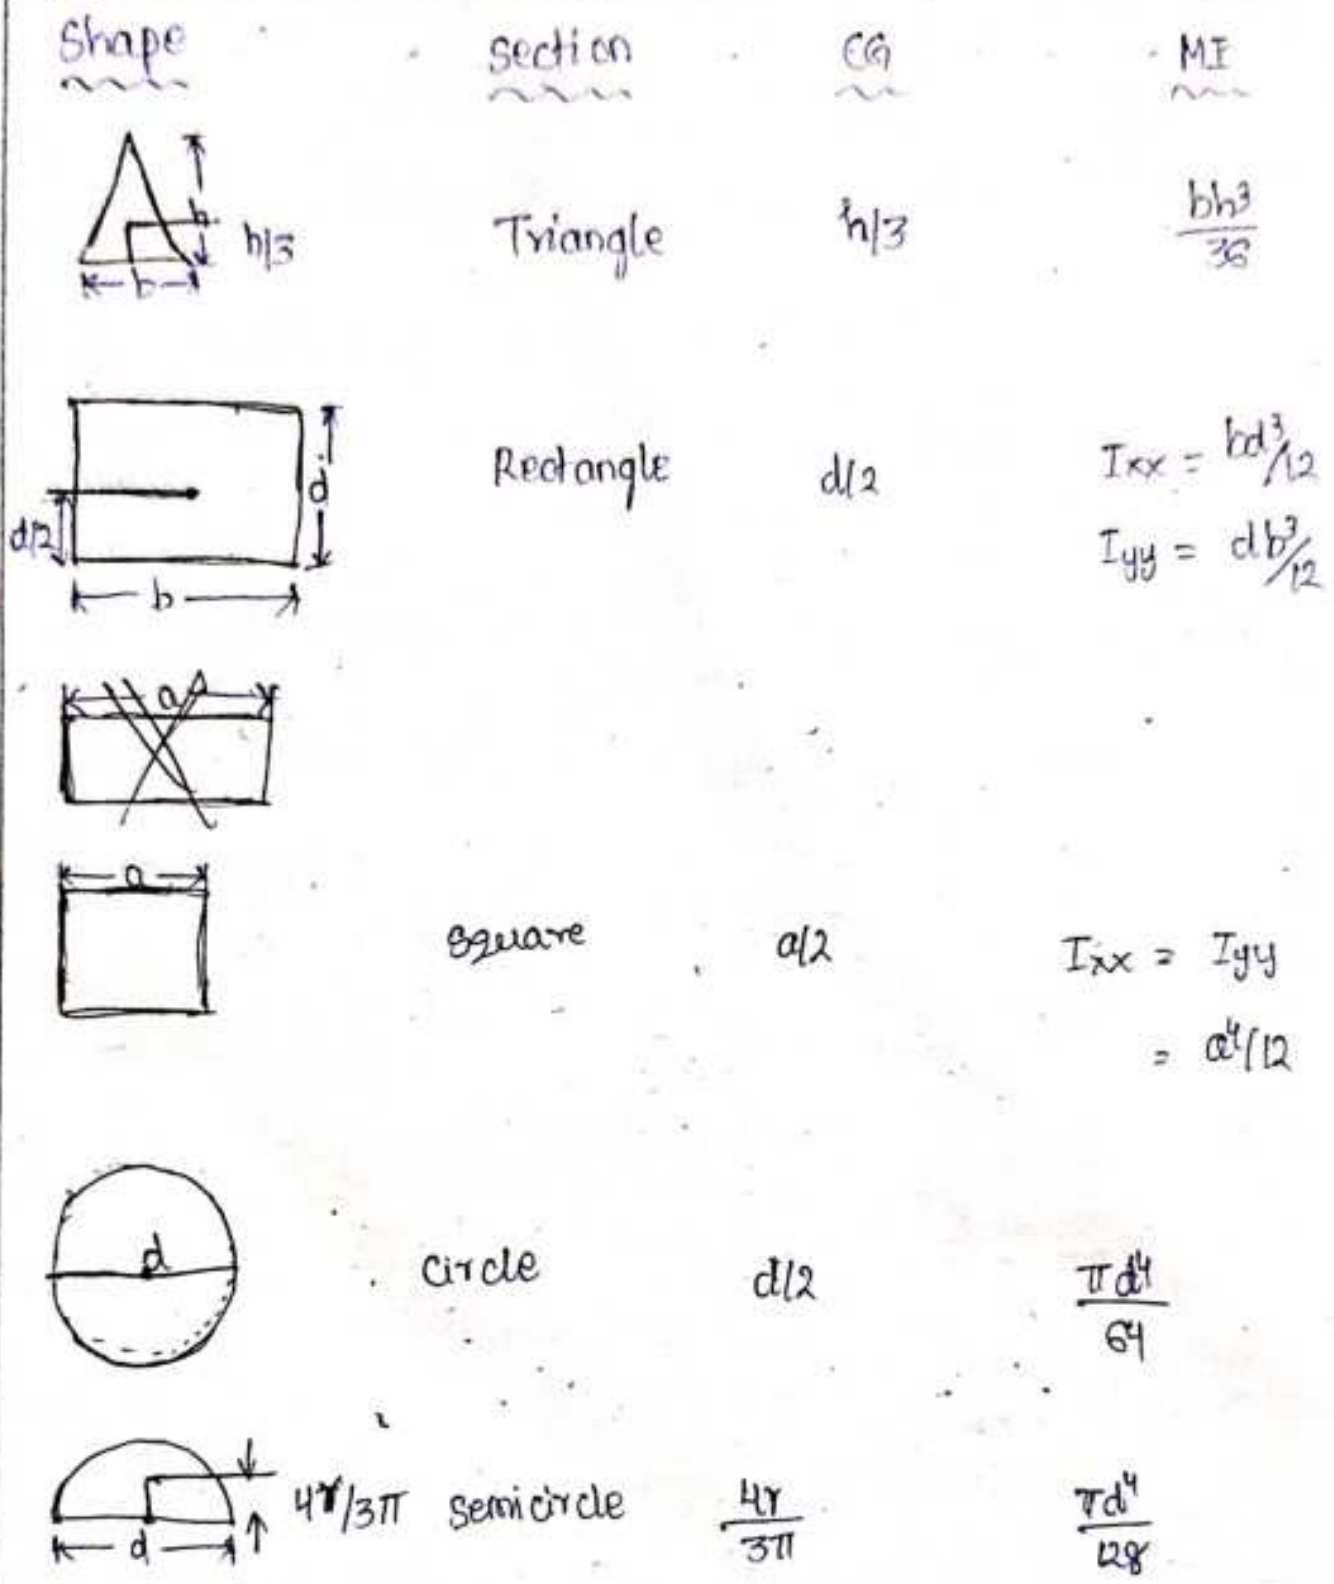 Shape section CG MI
h
h/3 Triangle h/3 bh³/36
b
d Rectangle d/2 Ixx = bd³/12
d/2 Iyy = db³/12
b
a
a
square a/2 Ixx = Iyy
= a⁴/12
d circle d/2 πd⁴/64
4r/3π semicircle 4r/3π πd⁴/128
d